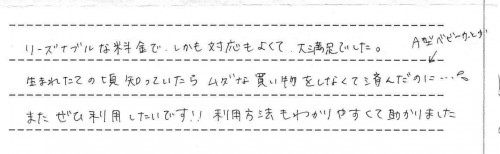 リーズナブルな料金で、しかも対応もよくて、大満足でした。
A型ベビーカーとか
生まれたての頃知っていたら ムダな買い物をしなくて済んだのに…。
また ぜひ利用したいです!! 利用方法もわかりやすくて助かりました